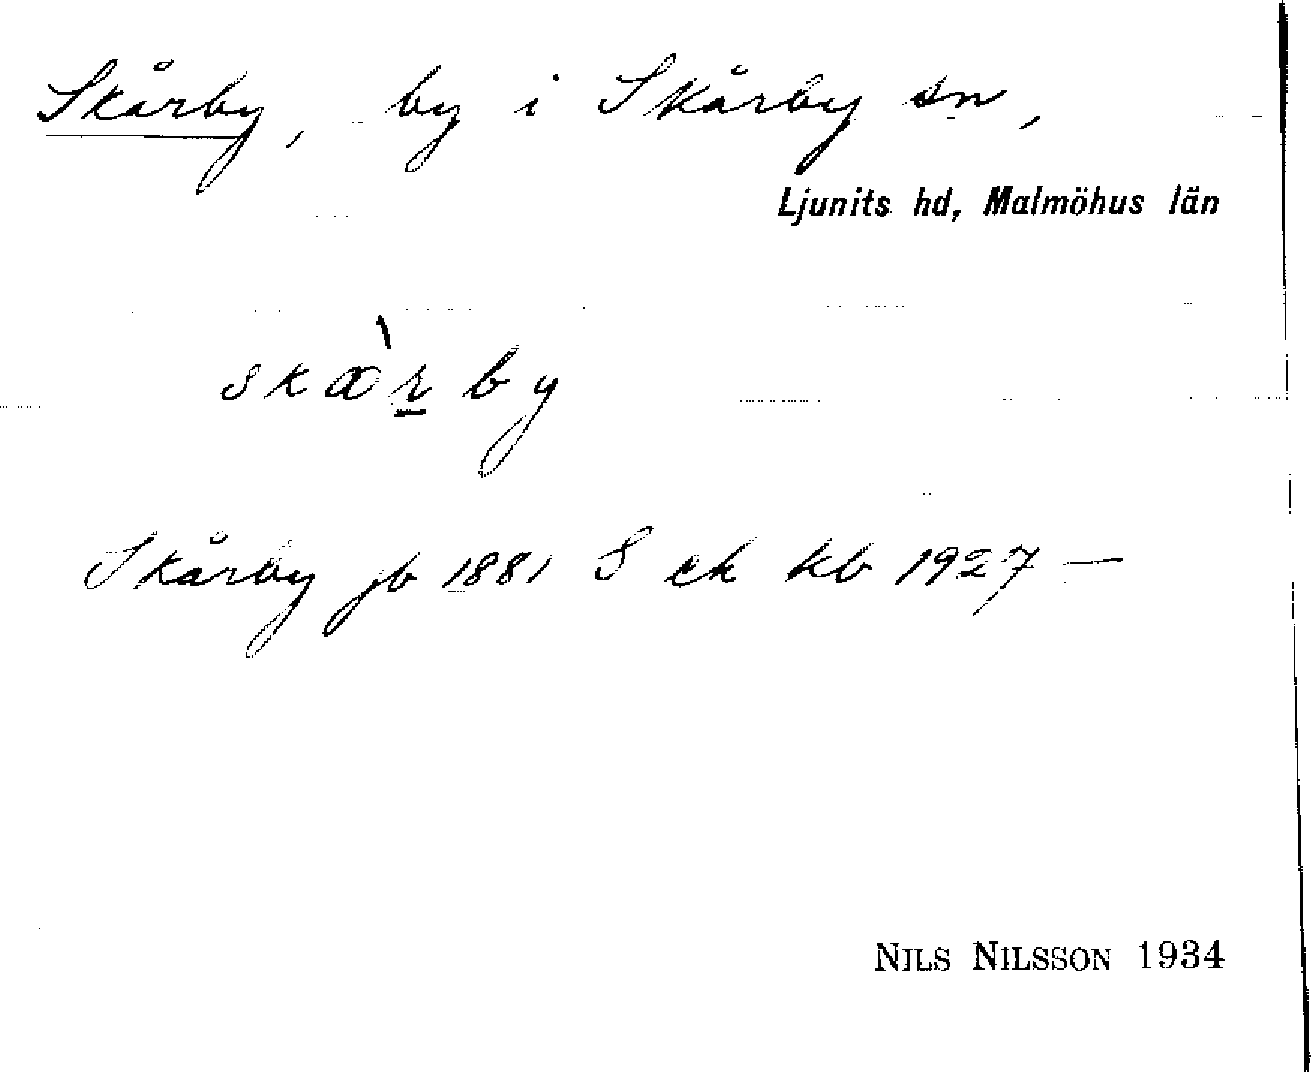 Skårby, by i Skårby sn,
Ljunits hd, Malmöhus län
skàr̲by
Skårby jb 1881 S ek kb 1927 —
NILS NILSSON 1934